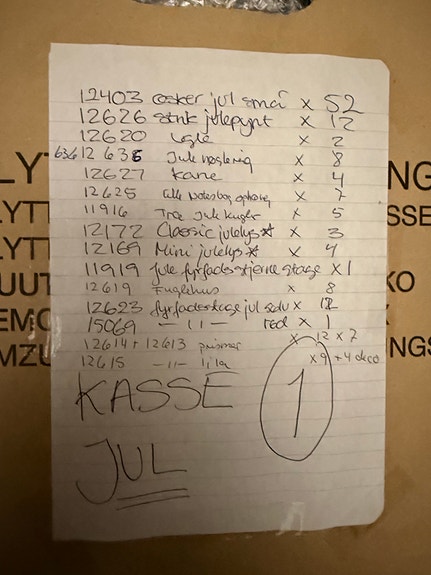 12403 æsker jul små x 52
12626 stnk julepynt x 12
12620 x 2
636 12 636 Jule x 8
12627 Kane x 4
12625 x 7
11916 Træ Jule Kugler x 5
12172 Classic julelys* x 3
12169 Mini julelys* x 4
11919 Jule fyrfadsstjerne stage x 1
12619 Fuglehus x 8
12623 fyrfadsstage jul sølv x 12
15069 —11— rød x 1
12614 + 12613 prismer x 12 x 7
12615 —11— lilla x 9 + 4 deco
KASSE 1
JUL
LYT
LYTT
UUT
EMO
MZU
NG
SSE
KO
NGS